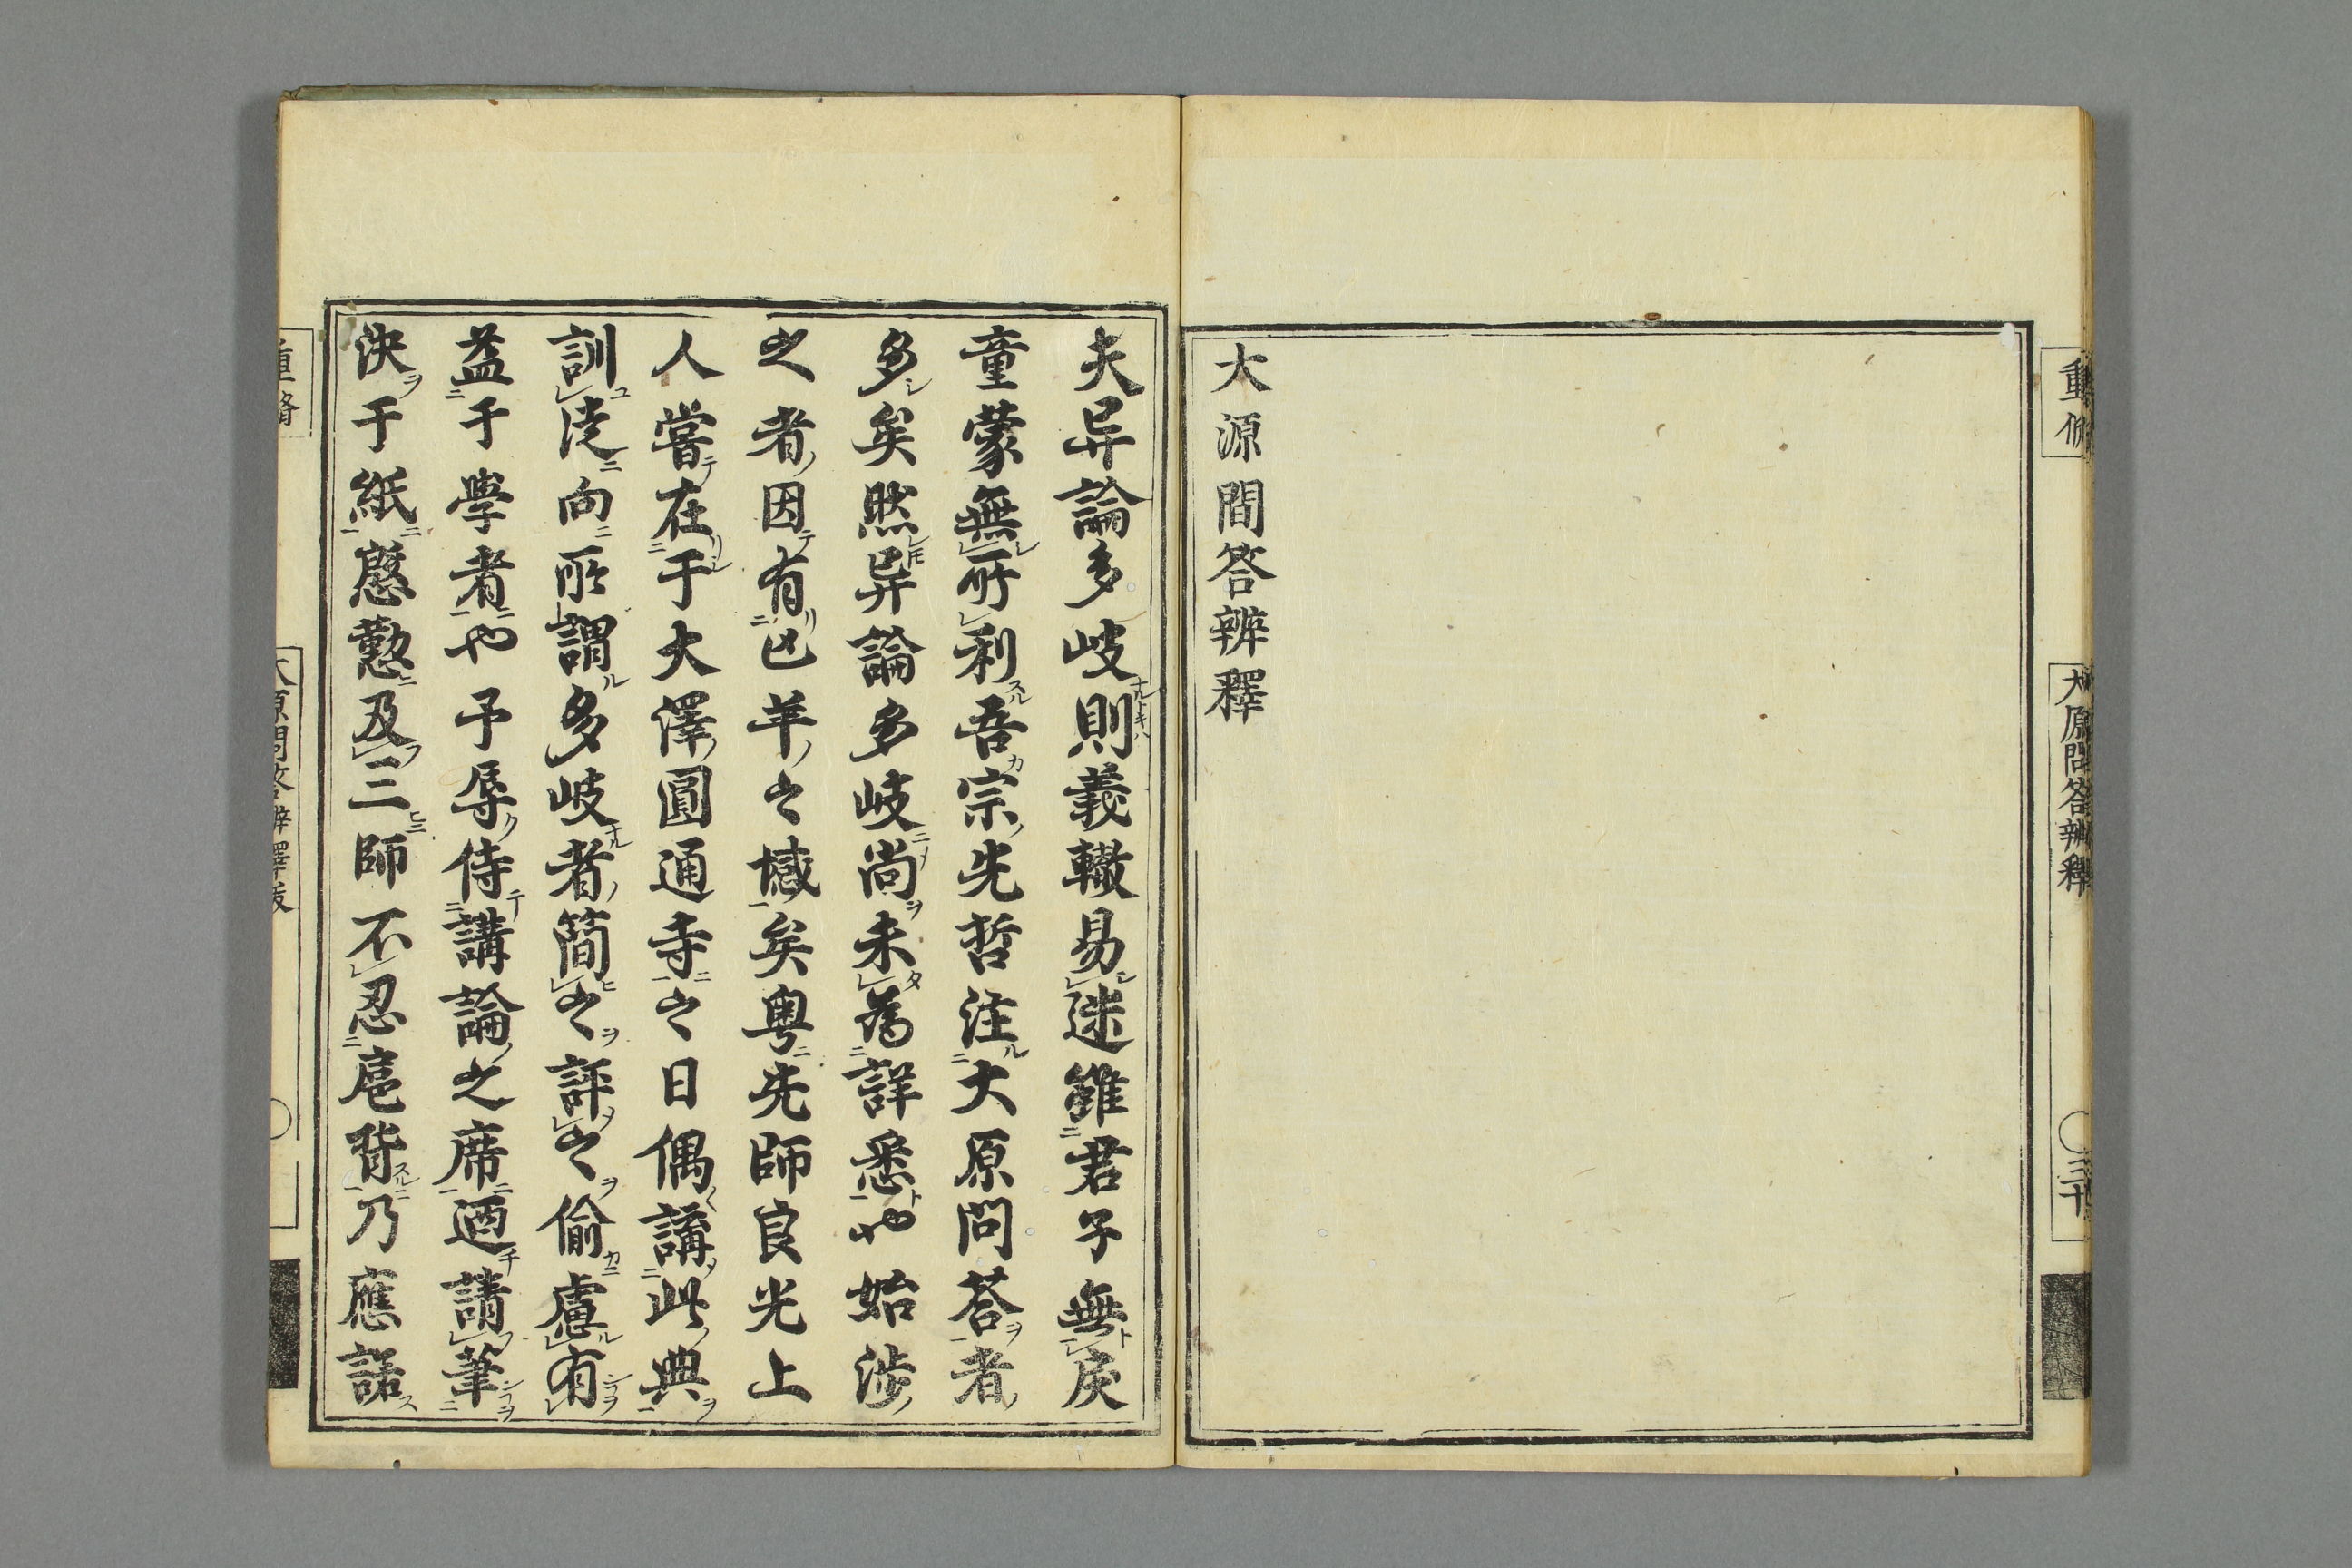 重脩
大原問答辨釋
三十
大源問答辨釋
夫异論多岐則義轍易迷雖君子無戾
童蒙無所利吾宗先哲注大原問荅者
多矣然异論多岐尚未為詳悉也始涉
之者因有亡羊之憾矣粤先師良光上
人嘗在于大澤圓通寺之日偶講此典
訓徒向所謂多岐者簡之評之偷慮有
益于學者也予辱侍講論之席迺請筆
決于紙慇懃及三師不忍扈背乃應諾
重脩
大原問答辨釋跋